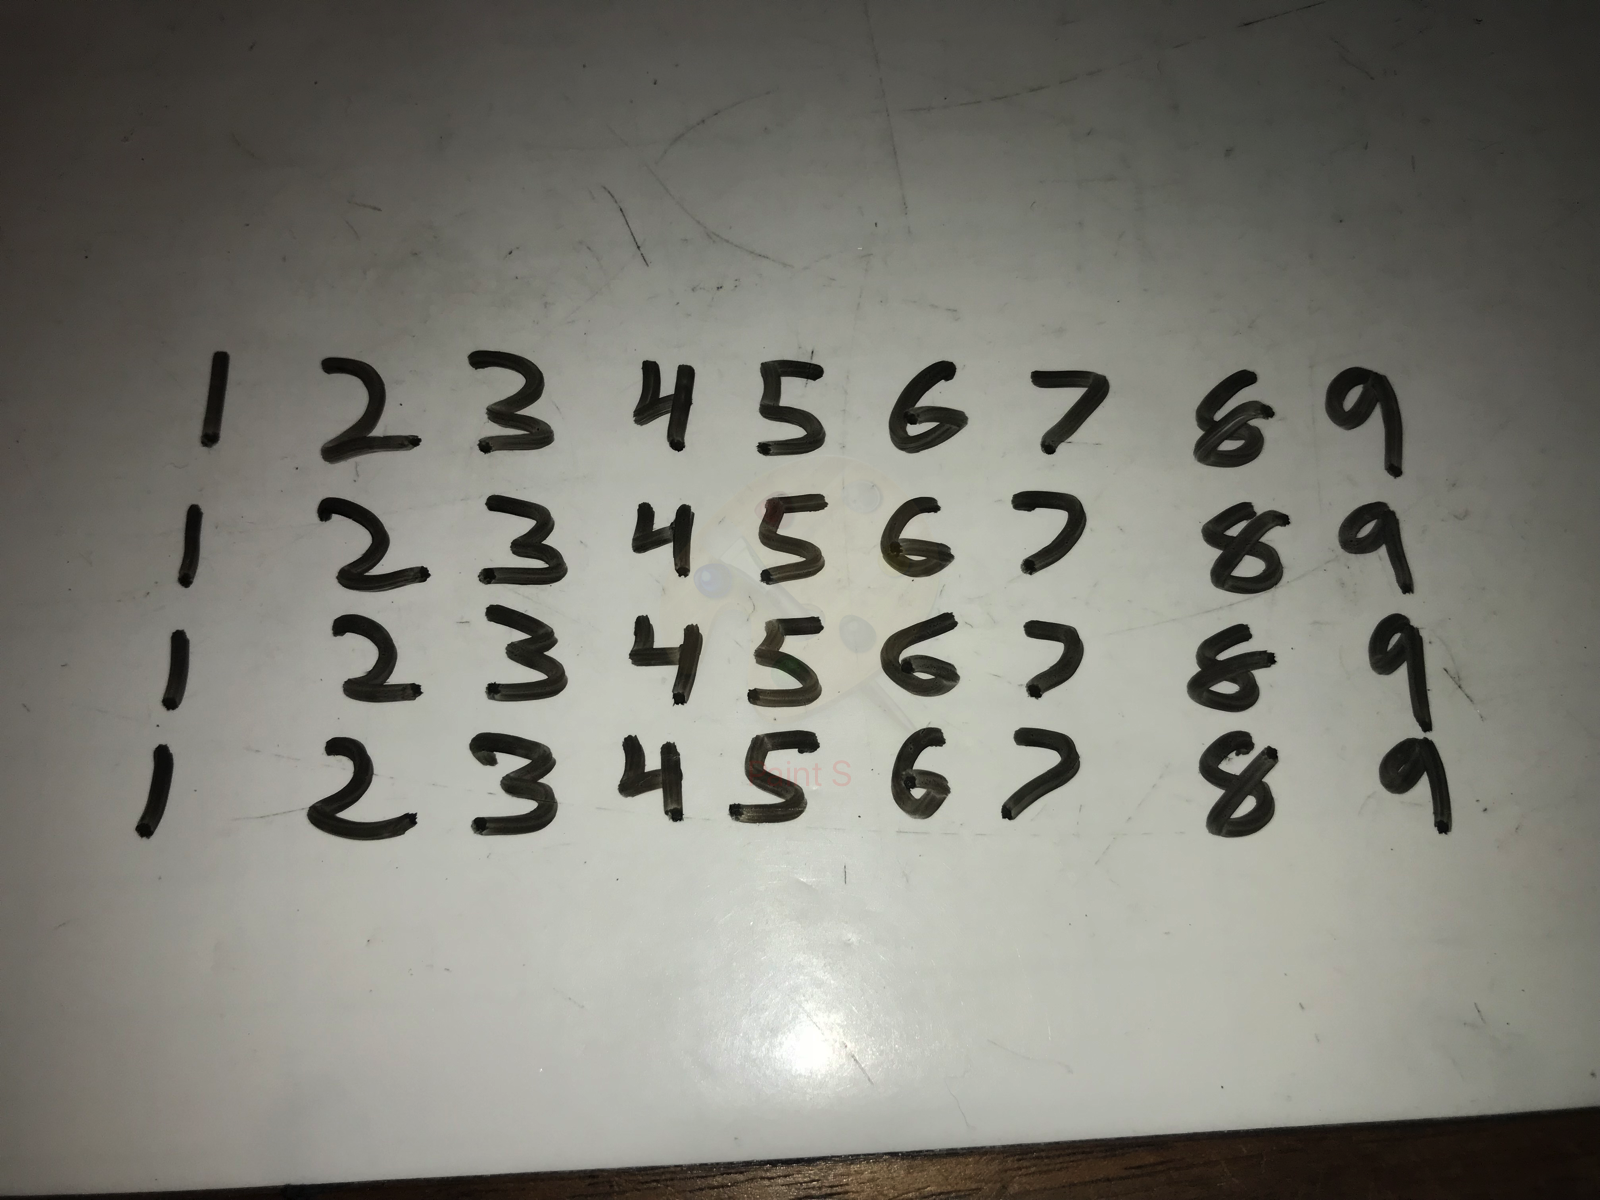 1 2 3 4 5 6 7 8 9
1 2 3 4 5 6 7 8 9
1 2 3 4 5 6 7 8 9
1 2 3 4 5 6 7 8 9
Paint S